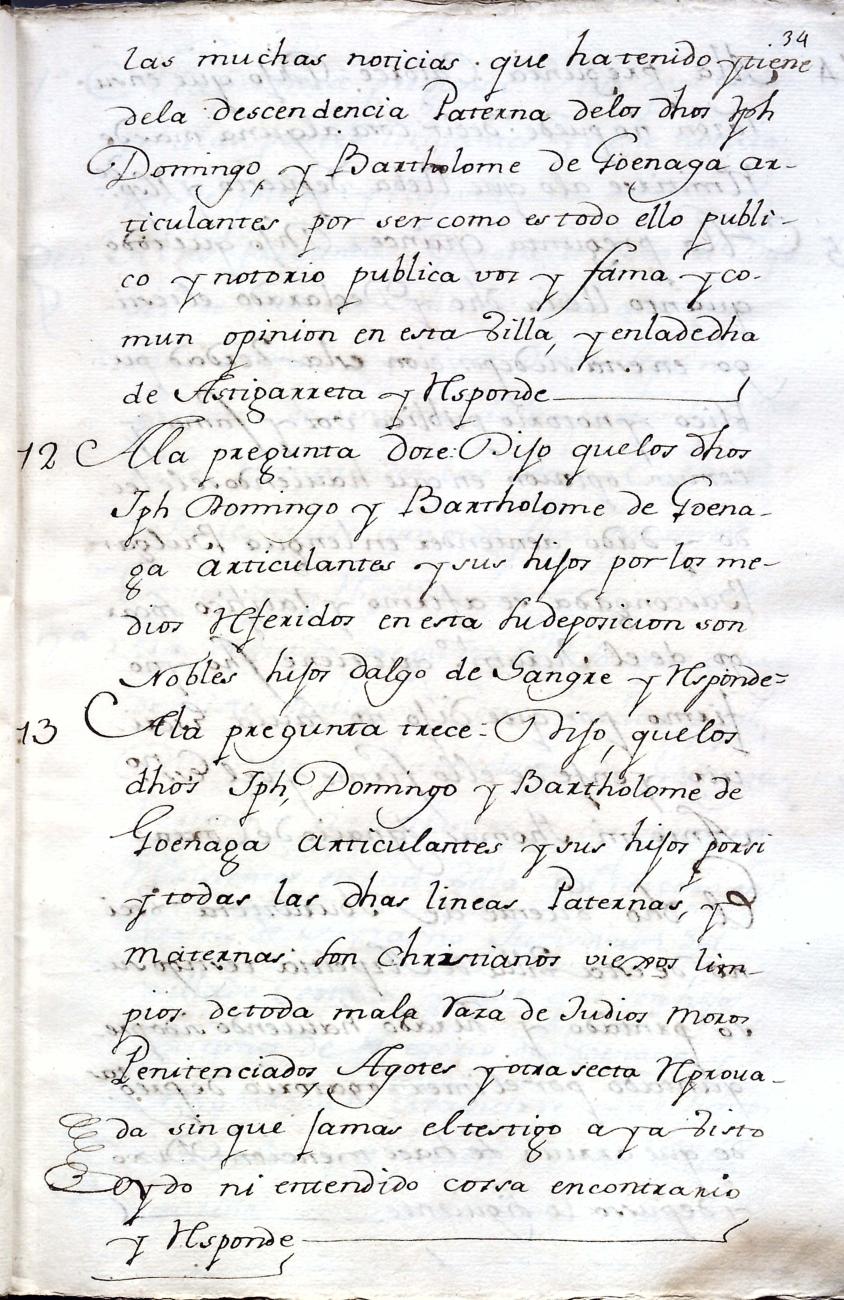 34
las muchas noticias que hatenido ytiene
dela descendencia Paterna delos dhos Jph
Domingo, y Bartholome de Goenaga ar-
ticulantes por ser como es todo ello publi-
co y notorio publica voz y fama y co-
mun opinion en esta Villa, y enladedha
de Astigarreta y Responde
12 Ala pregunta doze: Dijo quelos dhos
Jph Domingo y Bartholome de Goena-
ga articulantes y sus hijos por los me-
dios Referidos en esta su deposicion son
Nobles hijos dalgo de Sangre y Responde=
13 Ala pregunta trece: Dijo, quelos
dhos Jph, Domingo y Bartholome de
Goenaga articulantes y sus hijos porsi
y todas las dhas lineas Paternas, y
maternas son Christianos viejos lim-
pios detoda mala Raza de Judios moros
Penitenciados Agotes y otra secta Reprova-
da sin que Jamas el testigo aya Visto
oydo ni entendido cossa encontrario
y Responde